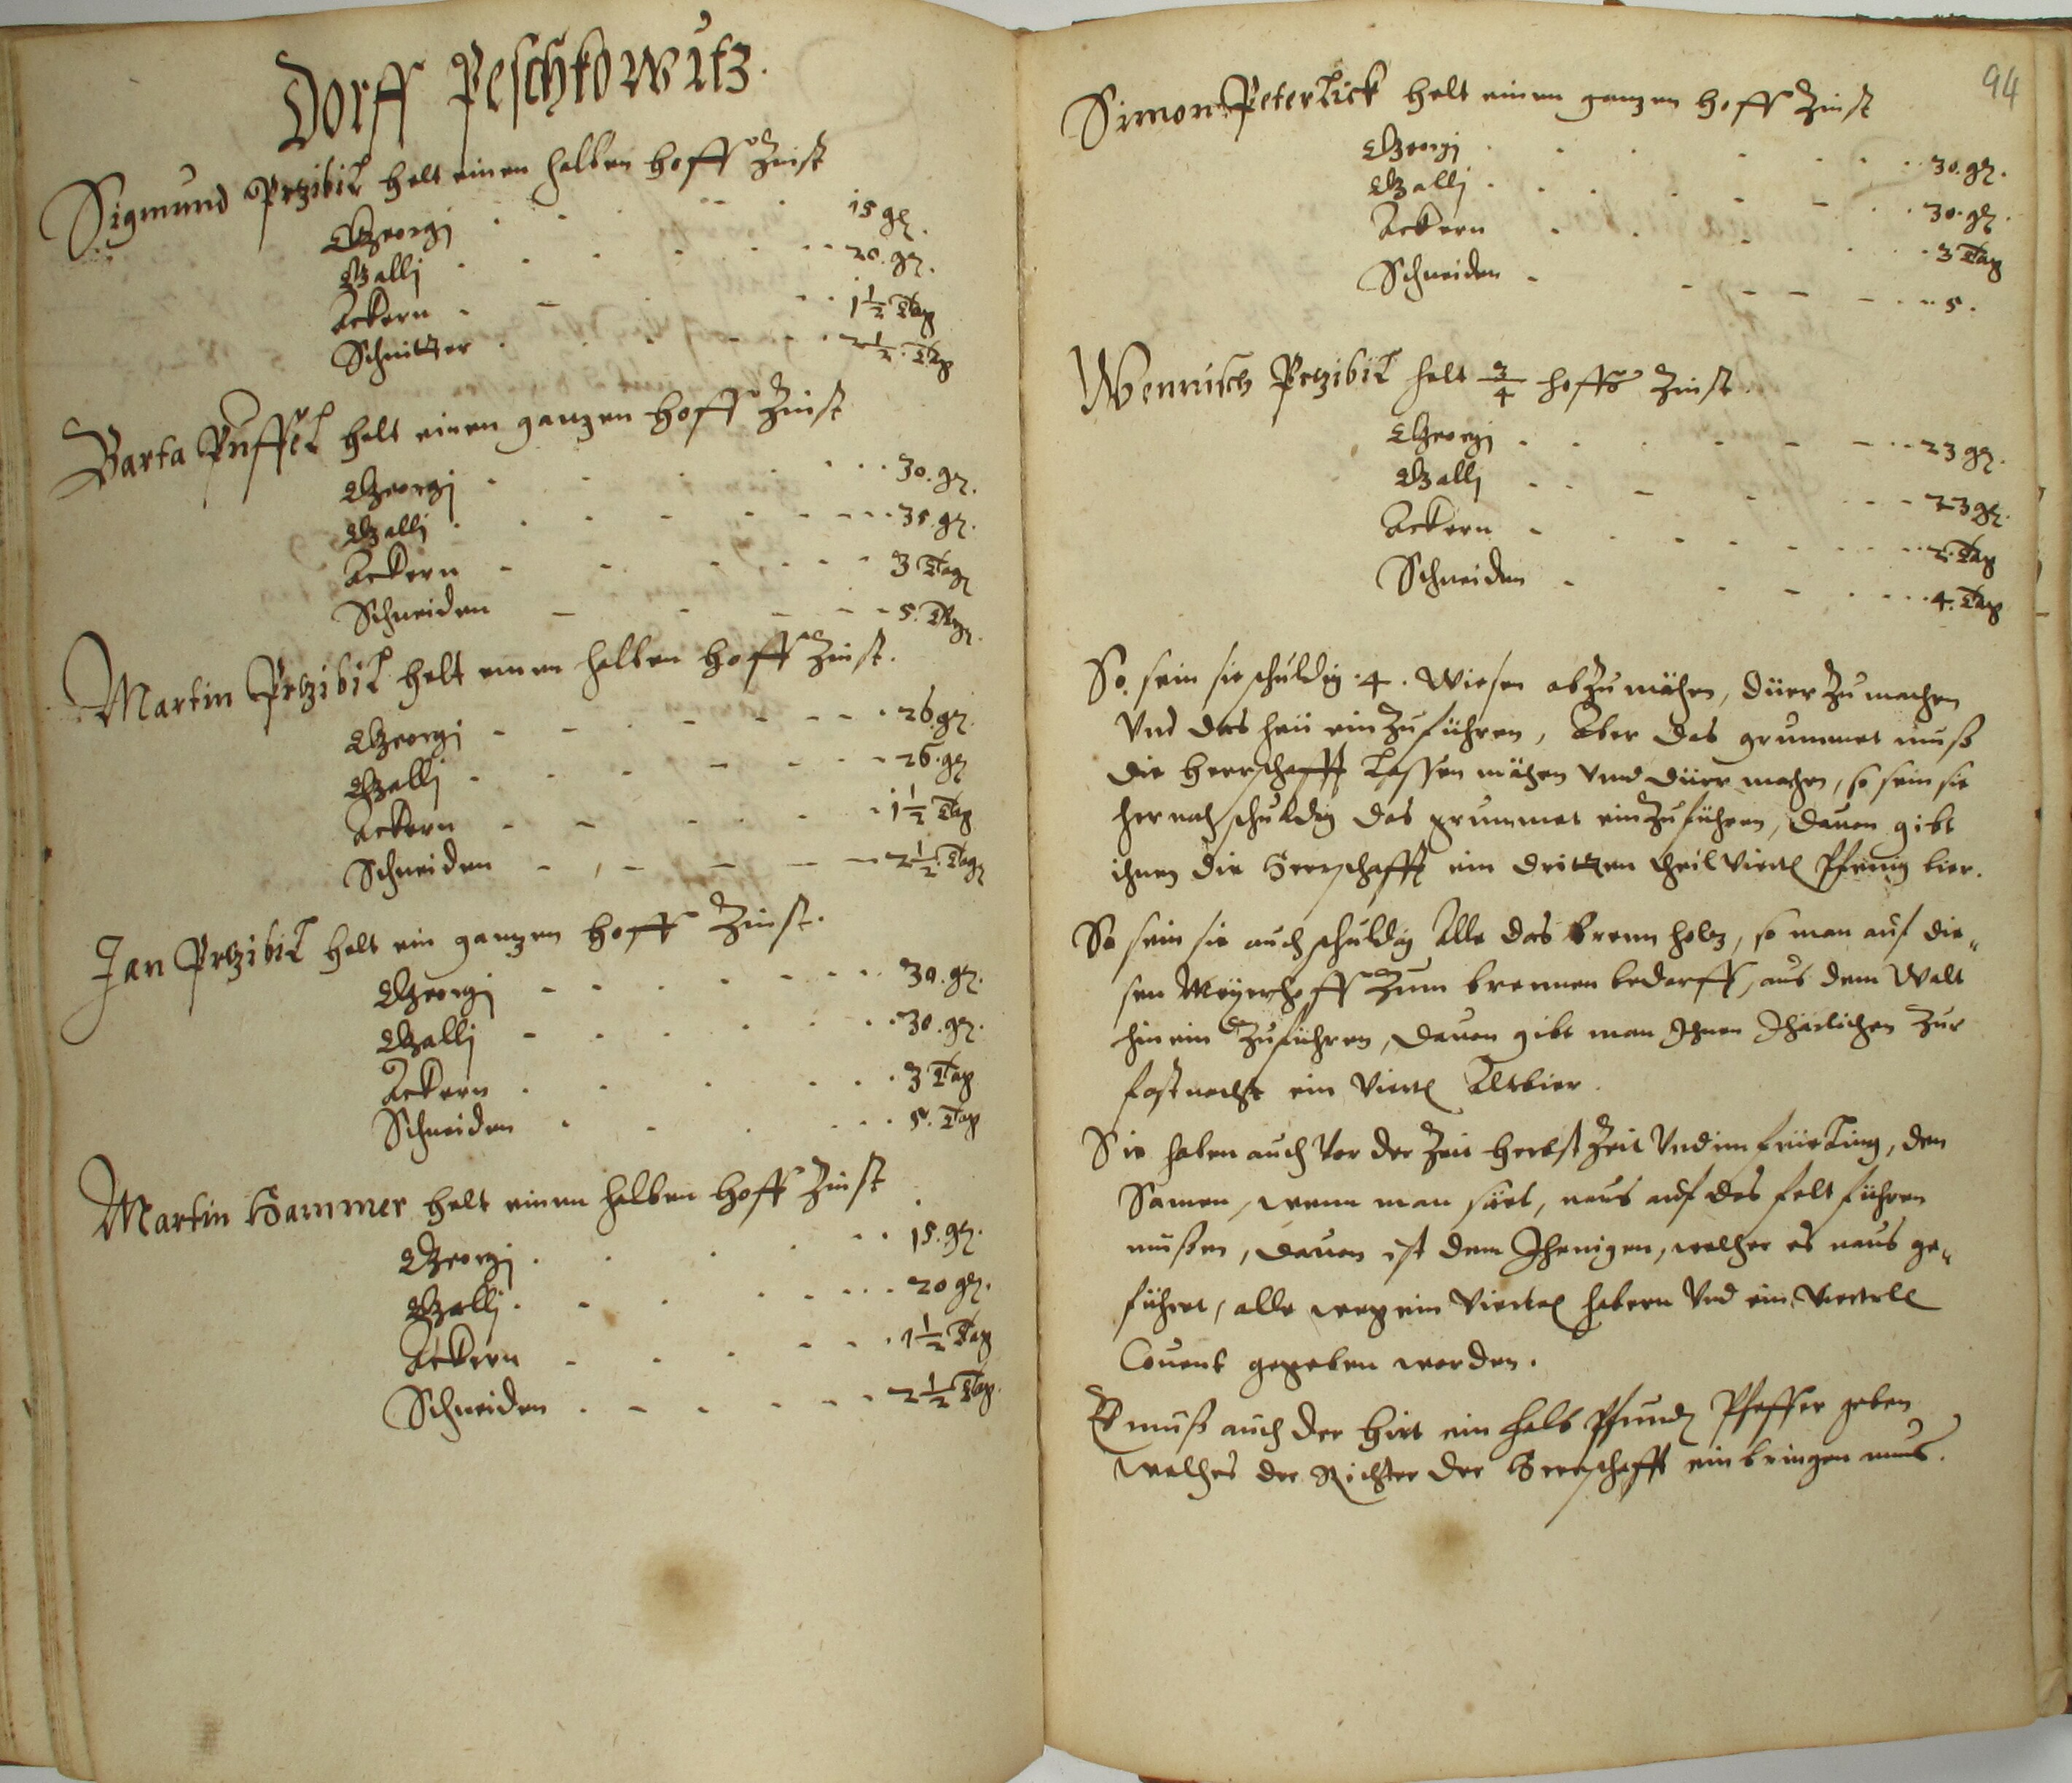 Dorff Peschkowitz.
Sigmund Przibil helt einen halben hoff Zinst
Georgj . . . 15 gr.
Gallj . . . 20. gr.
Ackern . . . 1 1/2 Tag
Schnitzer . . . 2 1/2. Tag
Barta Puffel helt einen ganzen hoff Zinst
Georgj . . . 30. gr.
Gallj . . . 35. gr.
Ackern . . . 3 Tag
Schneiden . . . 5. Tag
Martin Przibil helt einen halben hoff Zinst.
Georgj . . . 26 gr.
Gallj . . . 26. gr
Ackern . . . 1 1/2 Tag
Schneiden . . . 2 1/2. Tag
Jan Przibil helt ein ganzen hoff Zinst.
Georgj . . . 30. gr.
Gallj . . . 30. gr.
Ackern . . . 3 Tag
Schneiden . . . 5. Tag
Martin Hammer helt einen halben hoff Zinst
Georgj . . . 15. gr.
Gallj . . . 20 gr.
Ackern . . . 1 1/2 Tag
Schneiden . . . 2 1/2 Tag.
94
Simon Peterlick helt einen ganzen hoff Zinst
Georgj . . . 30. gr.
Gallj . . . 30. gr.
Ackern . . . 3 Tag
Schneiden . . . 5.
Wenrisch Przibil helt 3/4 hoffs Zinst.
Georgj . . . 23 gr.
Gallj . . . 23 gr.
Ackern . . . 2. Tag
Schneiden . . . 4. Tag
So sein sie schuldig .4. Wiesen abzumähen, dürr zu machen
Vnd das heü einzuführen, Aber das grummet muß
die Herrschafft Lassen mähen Vnnd dürr machen, so sein sie
hernach schuldig das grummet einzuführen, dauon gibt
ihnen die Herrschafft ein dritzen theil Viertl Pfenig bier.
So sein sie auch schuldig Alle das brenn holtz, so man auf die„
sen Meyerhoff Zum brennen bedarff, aus dem Walt
hinein Zuführen, dauon gibt man Ihnen Iharlichen Zur
fastnacht ein Viertl Altbier.
Sie haben auch Vor der Zeit herbst Zeit Vnd im früeling, den
Samen, wenn man säet, naus auf das felt führen
müßen, dauon ist dem Ihenigen, welcher es naus ge„
führet, alle weg ein Viertel habern Vnd ein Viertell
Couent gegeben worden.
Es muß auch der Hirt ein halb Pfundt Pfeffer geben
welches der Richter der Herrschafft einbringen mus.